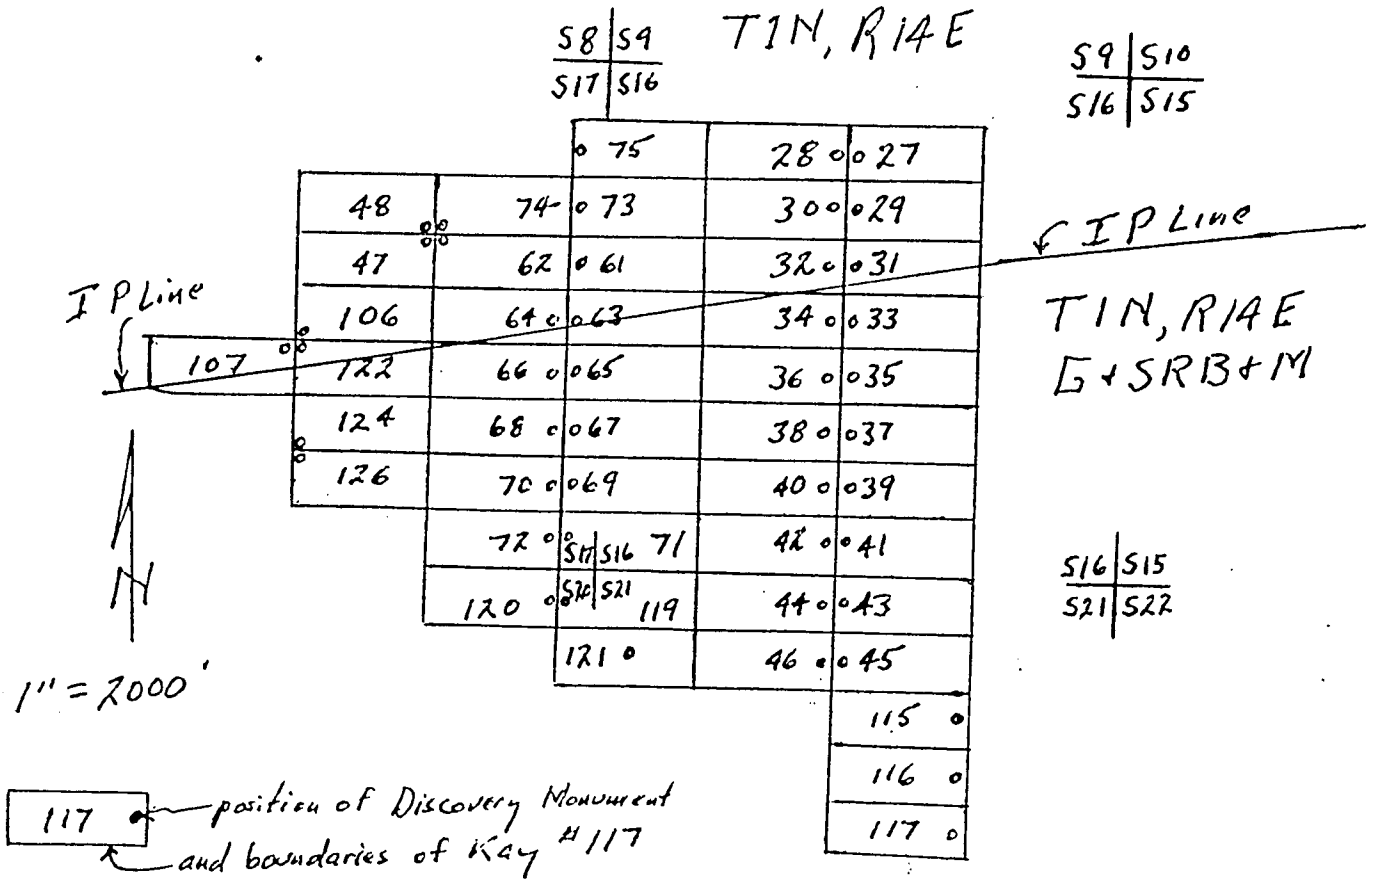 S8 S9
S17 S16
T1N, R14E
S9 S10
S16 S15
75 28 27
48 74 73 30 29
47 62 61 32 31
IP Line
IP Line
106 64 63 34 33
T1N, R14E
107 122 66 65 36 35
G+SRB+M
124 68 67 38 37
126 70 69 40 39
72 S17 S16 71 42 41
S16 S15
S20 S21
S21 S22
120 119 44 43
N
121 46 45
1" = 2000'
115
116
117
117 position of Discovery Monument
and boundaries of Kay #117